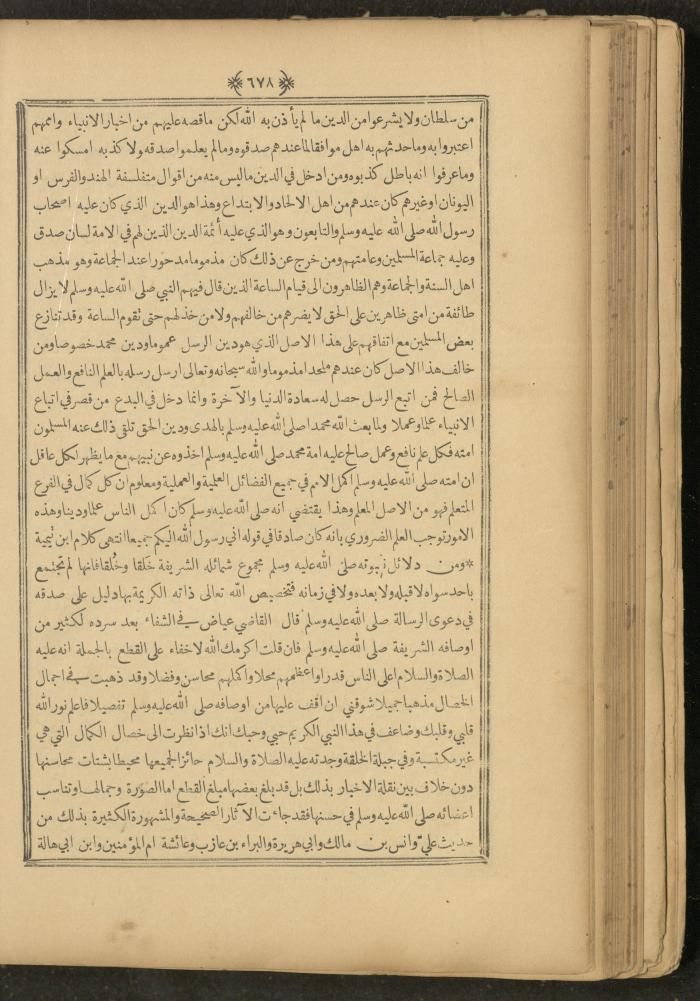 ٦٧٨
من سلطان ولا يشرعوا من الدين ما لم يأذن به الله لكن ما قصه عليهم من اخبار الانبياء واممهم
اعتبروا به وما حدثهم به اهل موافقا لما عندهم صدقوه وما لم يعلموا صدقه ولا كذبه امسكوا عنه
وما عرفوا انه باطل كذبوه ومن ادخل في الدين ما ليس منه من اقوال متفلسفة الهند والفرس او
اليونان او غيرهم كان عندهم من اهل الالحاد والابتداع وهذا هو الدين الذي كان عليه اصحاب
رسول الله صلى الله عليه وسلم والتابعون وهو الذي عليه أئمة الدين الذين لهم في الامة لسان صدق
وعليه جماعة المسلمين وعامتهم ومن خرج عن ذلك كان مذموما مدحورا عند الجماعة وهو مذهب
اهل السنة والجماعة وهم الظاهرون الى قيام الساعة الذين قال فيهم النبي صلى الله عليه وسلم لا يزال
طائفة من امتى ظاهرين على الحق لا يضرهم من خالفهم ولا من خذلهم حتى تقوم الساعة وقد تنازع
بعض المسلمين مع اتفاقهم على هذا الاصل الذي هو دين الرسل عموما ودين محمد خصوصا ومن
خالف هذا الاصل كان عندهم ملحدا مذموما والله سبحانه وتعالى ارسل رسله بالعلم النافع والعمل
الصالح فمن اتبع الرسل حصل له سعادة الدنيا والآخرة وانما دخل في البدع من قصر في اتباع
الانبياء علما وعملا ولما بعث الله محمدا صلى الله عليه وسلم بالهدى ودين الحق تلقى ذلك عنه المسلمون
امته فكل علم نافع وعمل صالح عليه امة محمد صلى الله عليه وسلم اخذوه عن نبيهم مع ما يظهر لكل عاقل
ان امته صلى الله عليه وسلم اكمل الامم في جميع الفضائل العلمية والعملية ومعلوم ان كل كمال في الفرع
المتعلم فهو من الاصل المعلم وهذا يقتضي انه صلى الله عليه وسلم كان اكمل الناس علما ودينا وهذه
الامور توجب العلم الضروري بانه كان صادقا في قوله اني رسول الله اليكم جميعا انتهى كلام ابن تيمية
*ومن دلائل نبوته صلى الله عليه وسلم مجموع شمائله الشريفة خَلقا وخُلقا فانها لم تجتمع
باحد سواه لا قبله ولا بعده ولا في زمانه فتخصيص الله تعالى ذاته الكريمة بها دليل على صدقه
في دعوى الرسالة صلى الله عليه وسلم قال القاضي عياض في الشفاء بعد سرده لكثير من
اوصافه الشريفة صلى الله عليه وسلم فان قلت اكرمك الله لا خفاء على القطع بالجملة انه عليه
الصلاة والسلام اعلى الناس قدرا واعظمهم محلا واكملهم محاسن وفضلا وقد ذهبت في اجمال
الخصال مذهبا جميلا شوقني ان اقف عليها من اوصافه صلى الله عليه وسلم تفصيلا فاعلم نور الله
قلبي وقلبك وضاعف في هذا النبي الكريم حبي وحبك انك اذا نظرت الى خصال الكمال التي هي
غير مكتسبة وفي جبلة الخلقة وجدته عليه الصلاة والسلام حائزا لجميعها محيطا بشتات محاسنها
دون خلاف بين نقلة الاخبار بذلك بل قد بلغ بعضها مبلغ القطع اما الصورة وجمالها وتناسب
اعضائه صلى الله عليه وسلم في حسنها فقد جاءت الآثار الصحيحة والمشهورة الكثيرة بذلك من
حديث علي وانس بن مالك وابي هريرة والبراء بن عازب وعائشة ام المؤمنين وابن ابي هالة